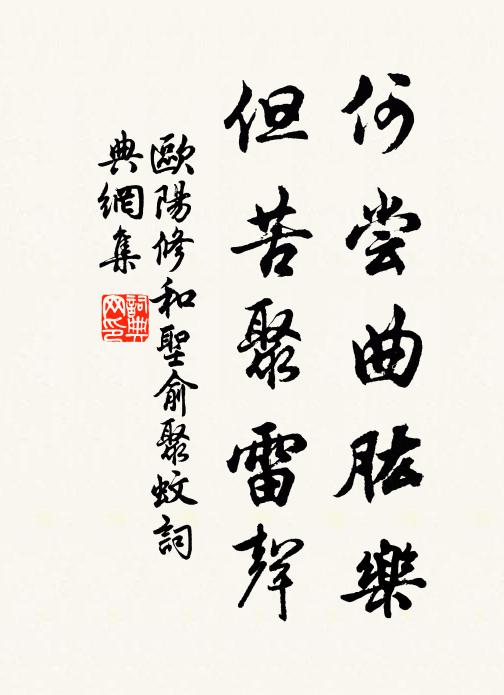 何尝曲肱樂
但苦聚雷聲
歐陽修和聖俞聚蚊詞
典網集
詞典
网印